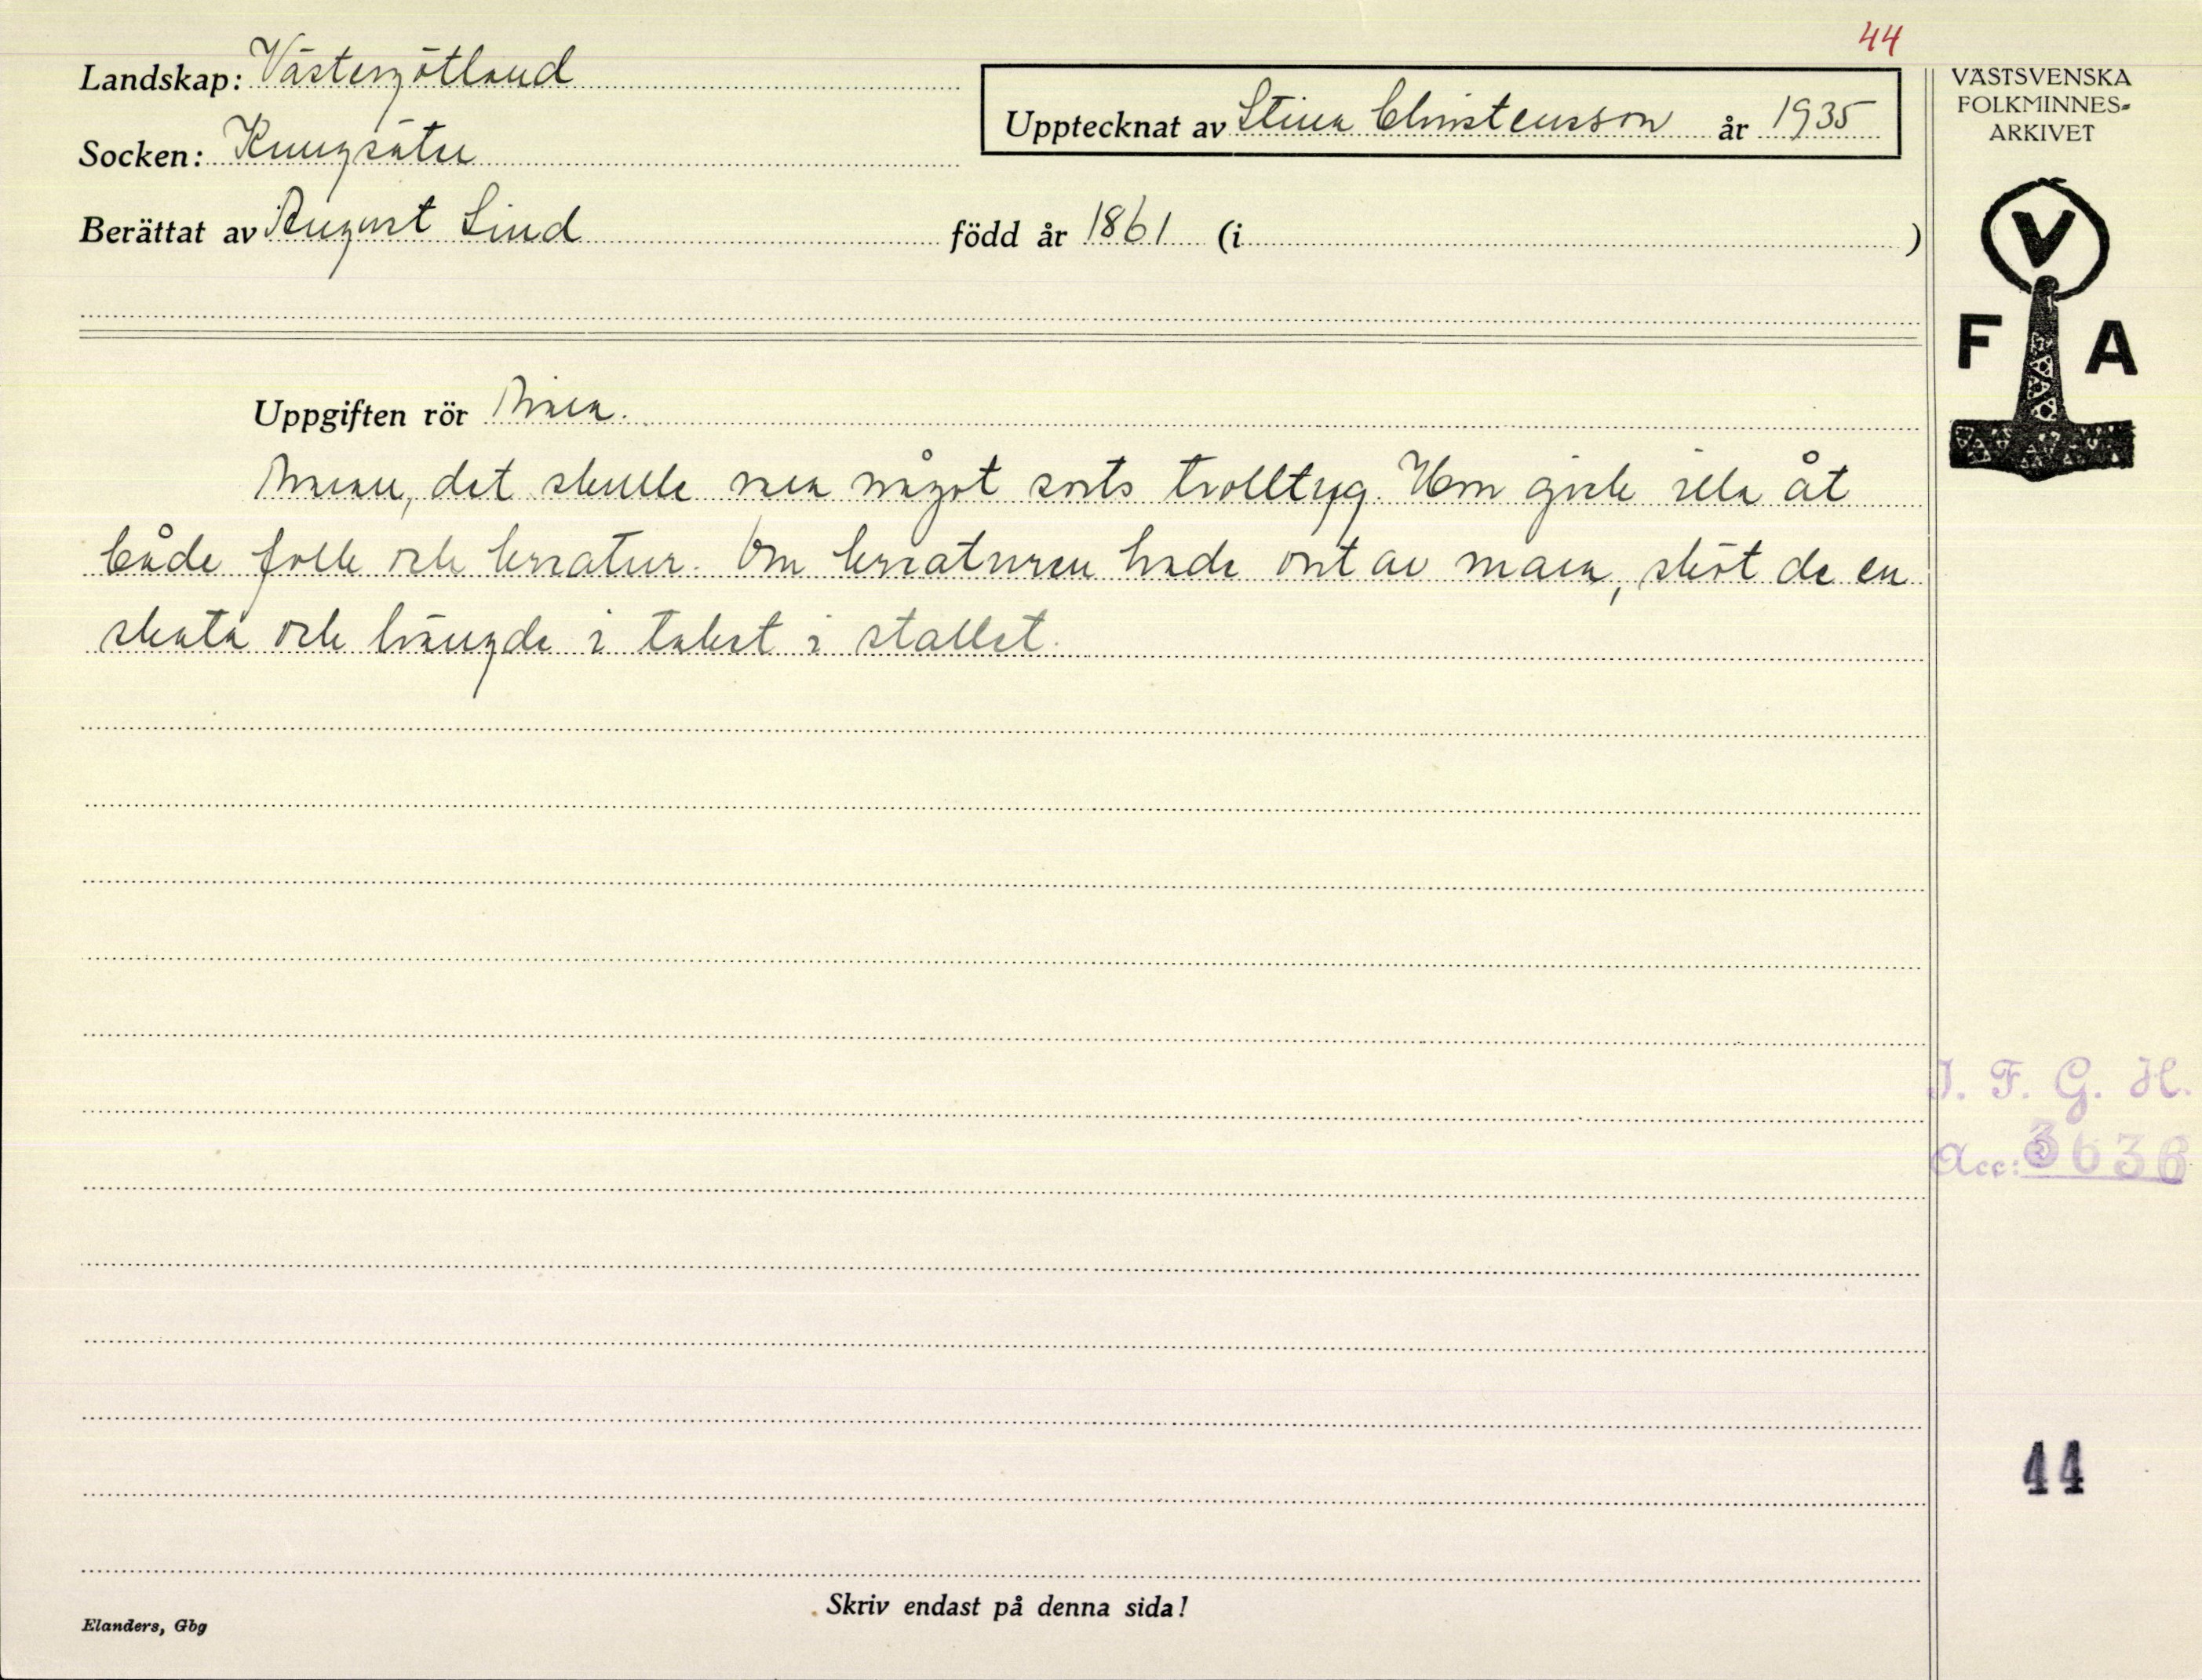 44
Landskap: Västergötland
Socken: Kungsäter
Berättat av August Lind född år 1861 (i )
Upptecknat av Stina Christensson år 1935
VÄSTSVENSKA
FOLKMINNES-
ARKIVET
V
F A
Uppgiften rör Maran.
Maran, det skulle vara något sorts trolltyg. Hon gick illa åt
både folk och kreatur. Om kreaturen hade ont av mara, sköt de en
skata och hängde i taket i stallet.
I. F. G. H.
Acc: 3636
44
Skriv endast på denna sida!
Elanders, Gbg